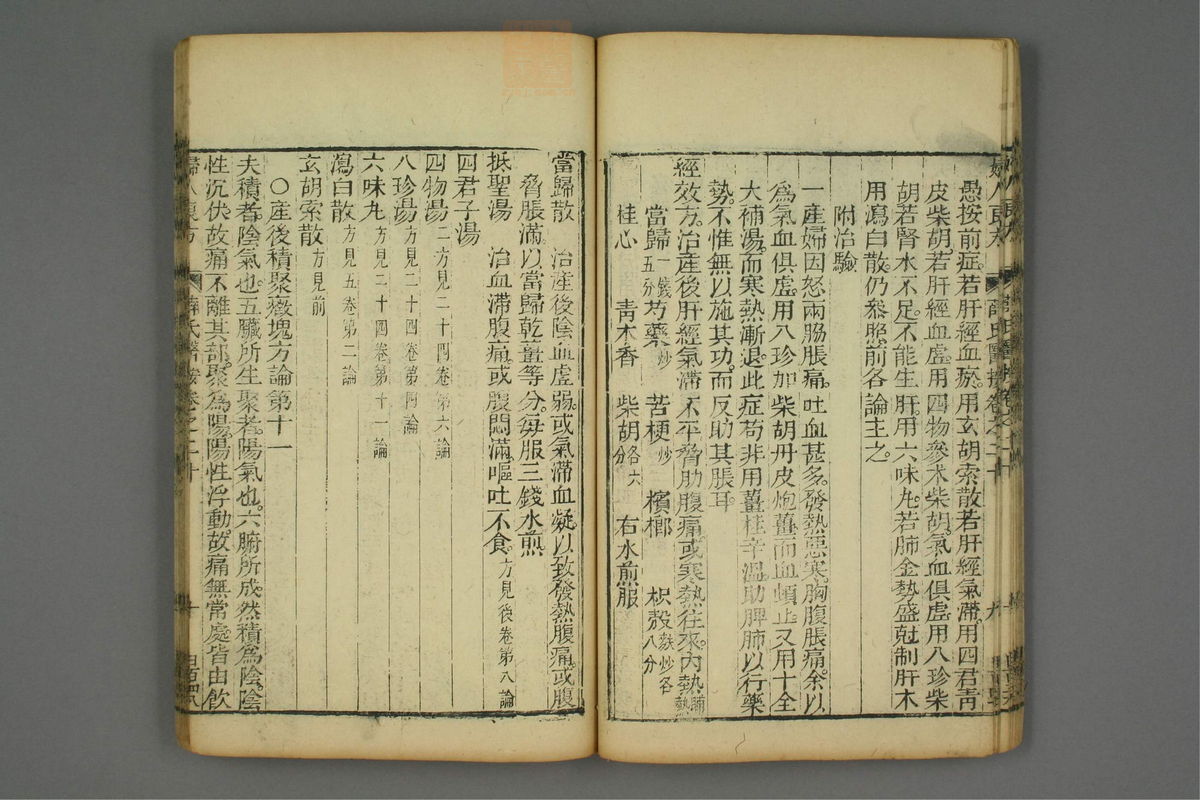 愚按前症。若肝經血瘀。用玄胡索散若肝經氣滯。用四君青
皮柴胡。若肝經血虛。用四物參术柴胡。氣血俱虛。用八珍柴
胡若腎水不足。不能生肝。用六味丸。若肺金勢盛。尅制肝木
用瀉白散。仍叅照前各論主之。
附治驗
一產婦因怒兩脇脹痛。吐血甚多。發熱惡寒。胸腹脹痛。余以
爲氣血俱虛。用八珍加柴胡丹皮炮薑而血頓止。又用十全
大補湯。而寒熱漸退。此症苟非用薑桂辛溫。助脾肺以行藥
勢。不惟無以施其功。而反助其脹耳。
經效方。治產後肝經氣滯。不平脅肋腹痛。或寒熱往來。內熱晡熱
當歸一錢五分 芍藥炒 苦梗炒 檳榔 枳殼麩炒各八分
桂心 青木香 柴胡各六分 右水煎服
當歸散 治產後陰血虛弱。或氣滯血凝。以致發熱腹痛。或腹
脅脹滿。以當歸乾薑等分。每服三錢水煎。
抵聖湯 治血滯腹痛。或腹悶滿。嘔吐不食。方見後卷第八論
四君子湯
四物湯二方見二十四卷第六論
八珍湯方見二十四卷第四論
六味丸方見二十四卷第十一論
瀉白散方見五卷第二論
玄胡索散方見前
○產後積聚癥塊方論第十一
夫積者。陰氣也。五臟所生。聚者。陽氣也。六腑所成。然積爲陰。陰
性沉伏。故痛不離其部。聚爲陽。陽性浮動。故痛無常處。皆由飲
婦人良方 薛氏醫按卷之二十 十